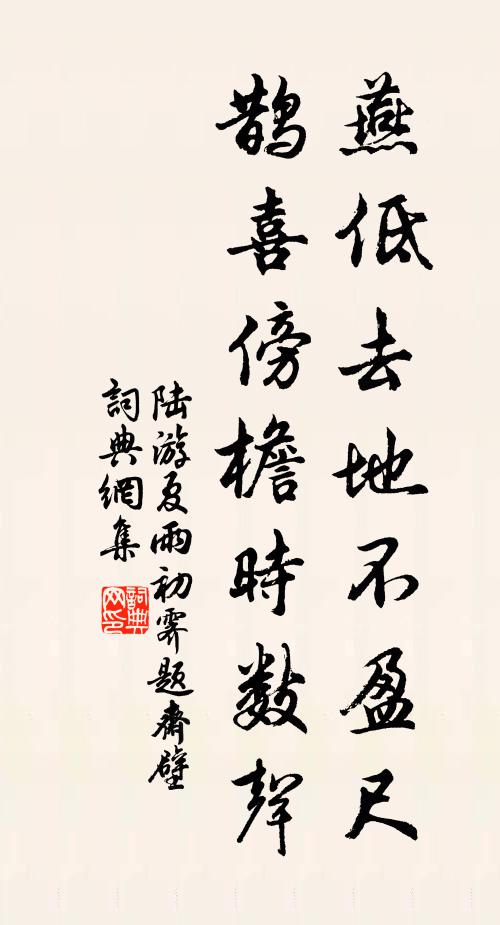 燕低去地不盈尺
鹊喜傍檐時數聲
陆游夏雨初霽题齋壁
詞典網集
詞典网印